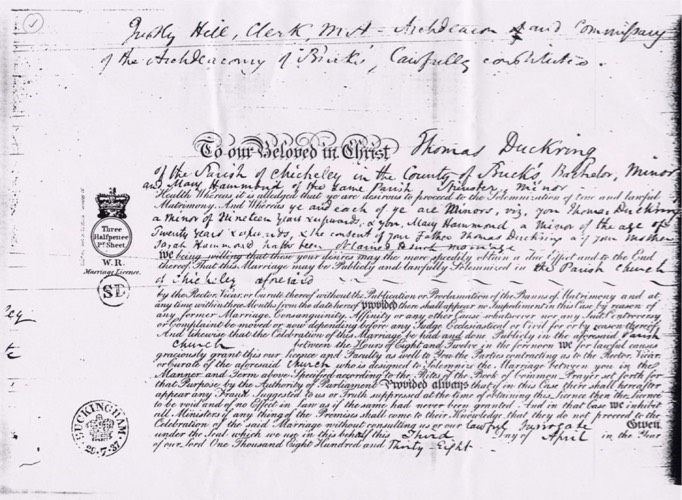 Justly Hill, Clerk, M.A - Archdeacon of and Commissary
of the Archdeaconry of Bucks, Lawfully constituted.
To our Beloved in Christ Thomas Duckring
of the Parish of Chicheley in the County of Bucks, Bachelor, Minor
and Mary Hammond of the same Parish Spinster, Minor
Health Whereas it is alledged that ye are desirous to proceed to the Solemnization of true and lawful
Matrimony. And Whereas ye and each of ye are Minors, viz, you Thomas Duckring
a minor of Nineteen Years & upwards, & you, Mary Hammond a minor of the age of
Twenty Years & upwards, & the consent of your Father Thomas Duckring & of your Mother
Sarah Hammond hath been obtained to such marriage
We being willing that these your desires may the more speedily obtain a due Effect and to the End
thereof That this Marriage may be Publicly and lawfully Solemnized in the Parish Church
of Chicheley aforesaid
by the Rector, Vicar, or Curate thereof without the Publication or Proclamation of the Banns of Matrimony and at
any time within three Months from the date hereof provided there shall appear no Impediment in this Case by reason of
any former Marriage Consanguinity Affinity or any other Cause whatsoever nor any Suit Controversy
or Complaint be moved or now depending before any Judge Ecclesiastical or Civil for or by reason thereof
And likewise that the Celebration of this Marriage be had and done Publicly in the aforesaid Parish
Church between the Hours of Eight and Twelve in the forenoon We for lawful causes
graciously grant this our Licence and Faculty as well to You the Parties contracting as to the Rector Vicar
or Curate of the aforesaid Church who is designed to Solemnize the Marriage between you in the
Manner and Form above Specified according to the Rites of the Book of Common Prayer set forth for
that Purpose by the Authority of Parliament Provided always that if in this Case there shall hereafter
appear any Fraud Suggested to us or Truth suppressed at the time of obtaining this Licence then the Licence
to be void and of no Effect in Law as if the same had never been granted And in that Case we inhibit
all Ministers if any thing of the Premises shall come to their Knowledge that they do not proceed to the
Celebration of the said Marriage without consulting us or our lawful Surrogate Given
under the Seal which we use in this behalf this Third Day of April in the Year
of our Lord One Thousand Eight Hundred and Thirty-Eight
Three
Halfpence
Pr. Sheet.
W.R.
Marriage Licence.
SD
BUCKINGHAM
20.7.37